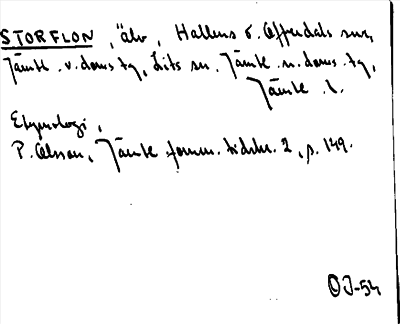 STORFLON, älv, Hallens o. Offerdals snr,
Jämtl. v. doms. tg, Lits sn. Jämtl. n. doms. tg,
Jämtl. l.
Etymologi,
P. Olsson, Jämtl. fornm. tidskr. 2, s. 149.
OJ-54